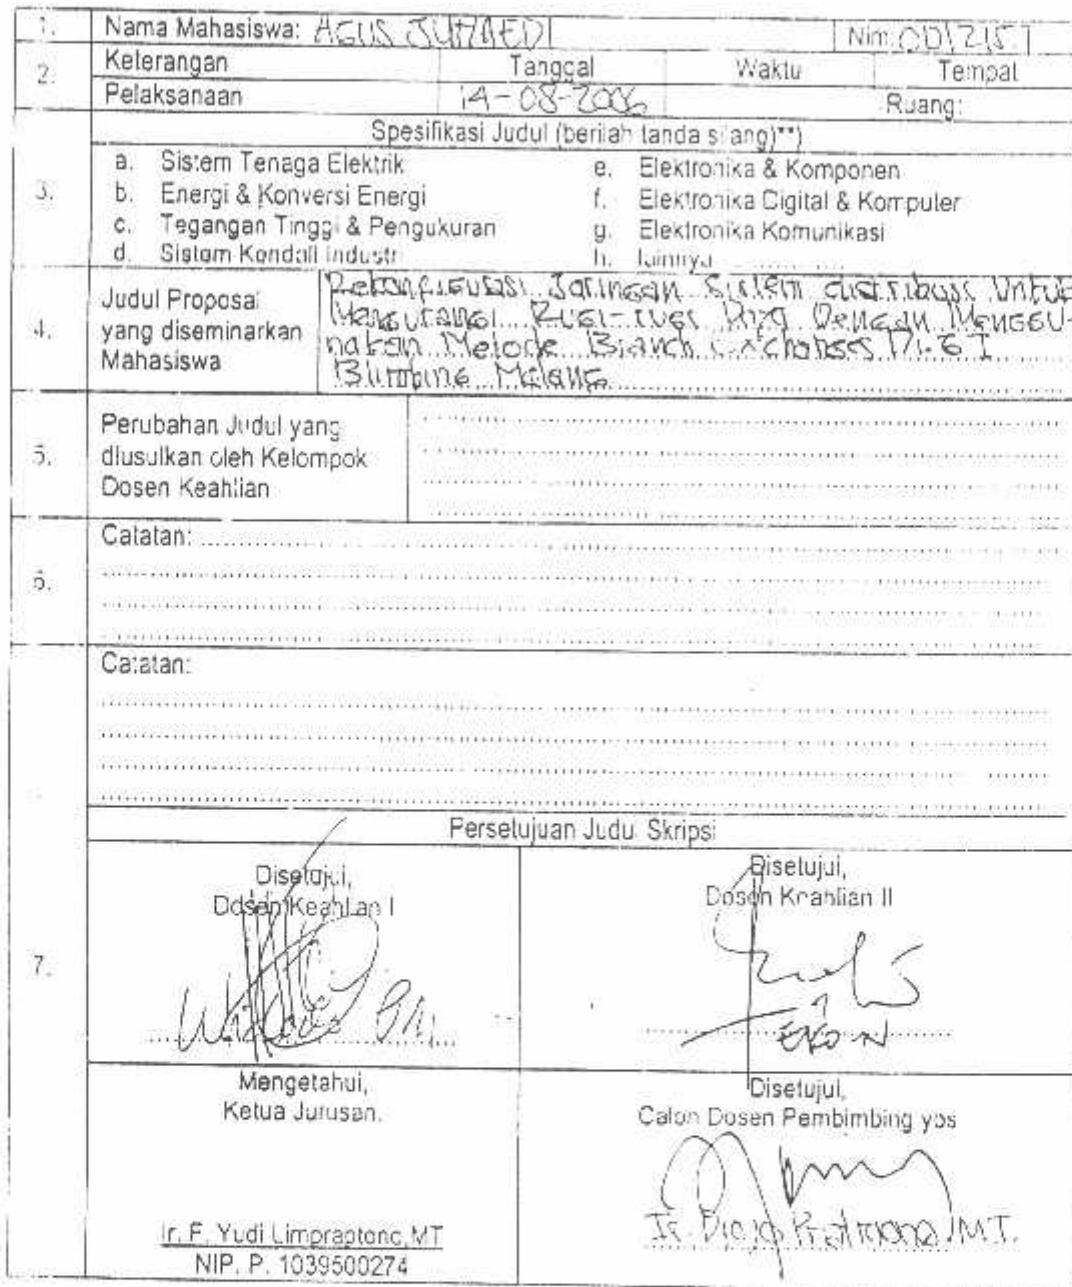 1. Nama Mahasiswa: AGUS JUNAEDI Nim: 0012157
2. Keterangan Tanggal Waktu Tempat
Pelaksanaan 14-08-2006 Ruang:
3. Spesifikasi Judul (berilah tanda silang)**)
a. Sistem Tenaga Elektrik e. Elektronika & Komponen
b. Energi & Konversi Energi f. Elektronika Digital & Komputer
c. Tegangan Tinggi & Pengukuran g. Elektronika Komunikasi
d. Sistem Kendali Industri h. lainnya
4. Judul Proposal yang diseminarkan Mahasiswa
Rekonfigurasi Jaringan Sistem distribusi Untuk
Mengurangi Rugi-rugi Daya Dengan Menggu-
nakan Metode Branch Exchanges Di G I
Blimbing Malang
5. Perubahan Judul yang
diusulkan oleh Kelompok
Dosen Keahlian
6. Catatan:
Catatan:
Persetujuan Judul Skripsi
7. Disetujui,
Dosen Keahlian I
Disetujui,
Dosen Keahlian II
EKO N
Mengetahui,
Ketua Jurusan.
Ir. F. Yudi Limpraptono, MT
NIP. P. 1039500274
Disetujui,
Calon Dosen Pembimbing ybs
Ir. M.T.